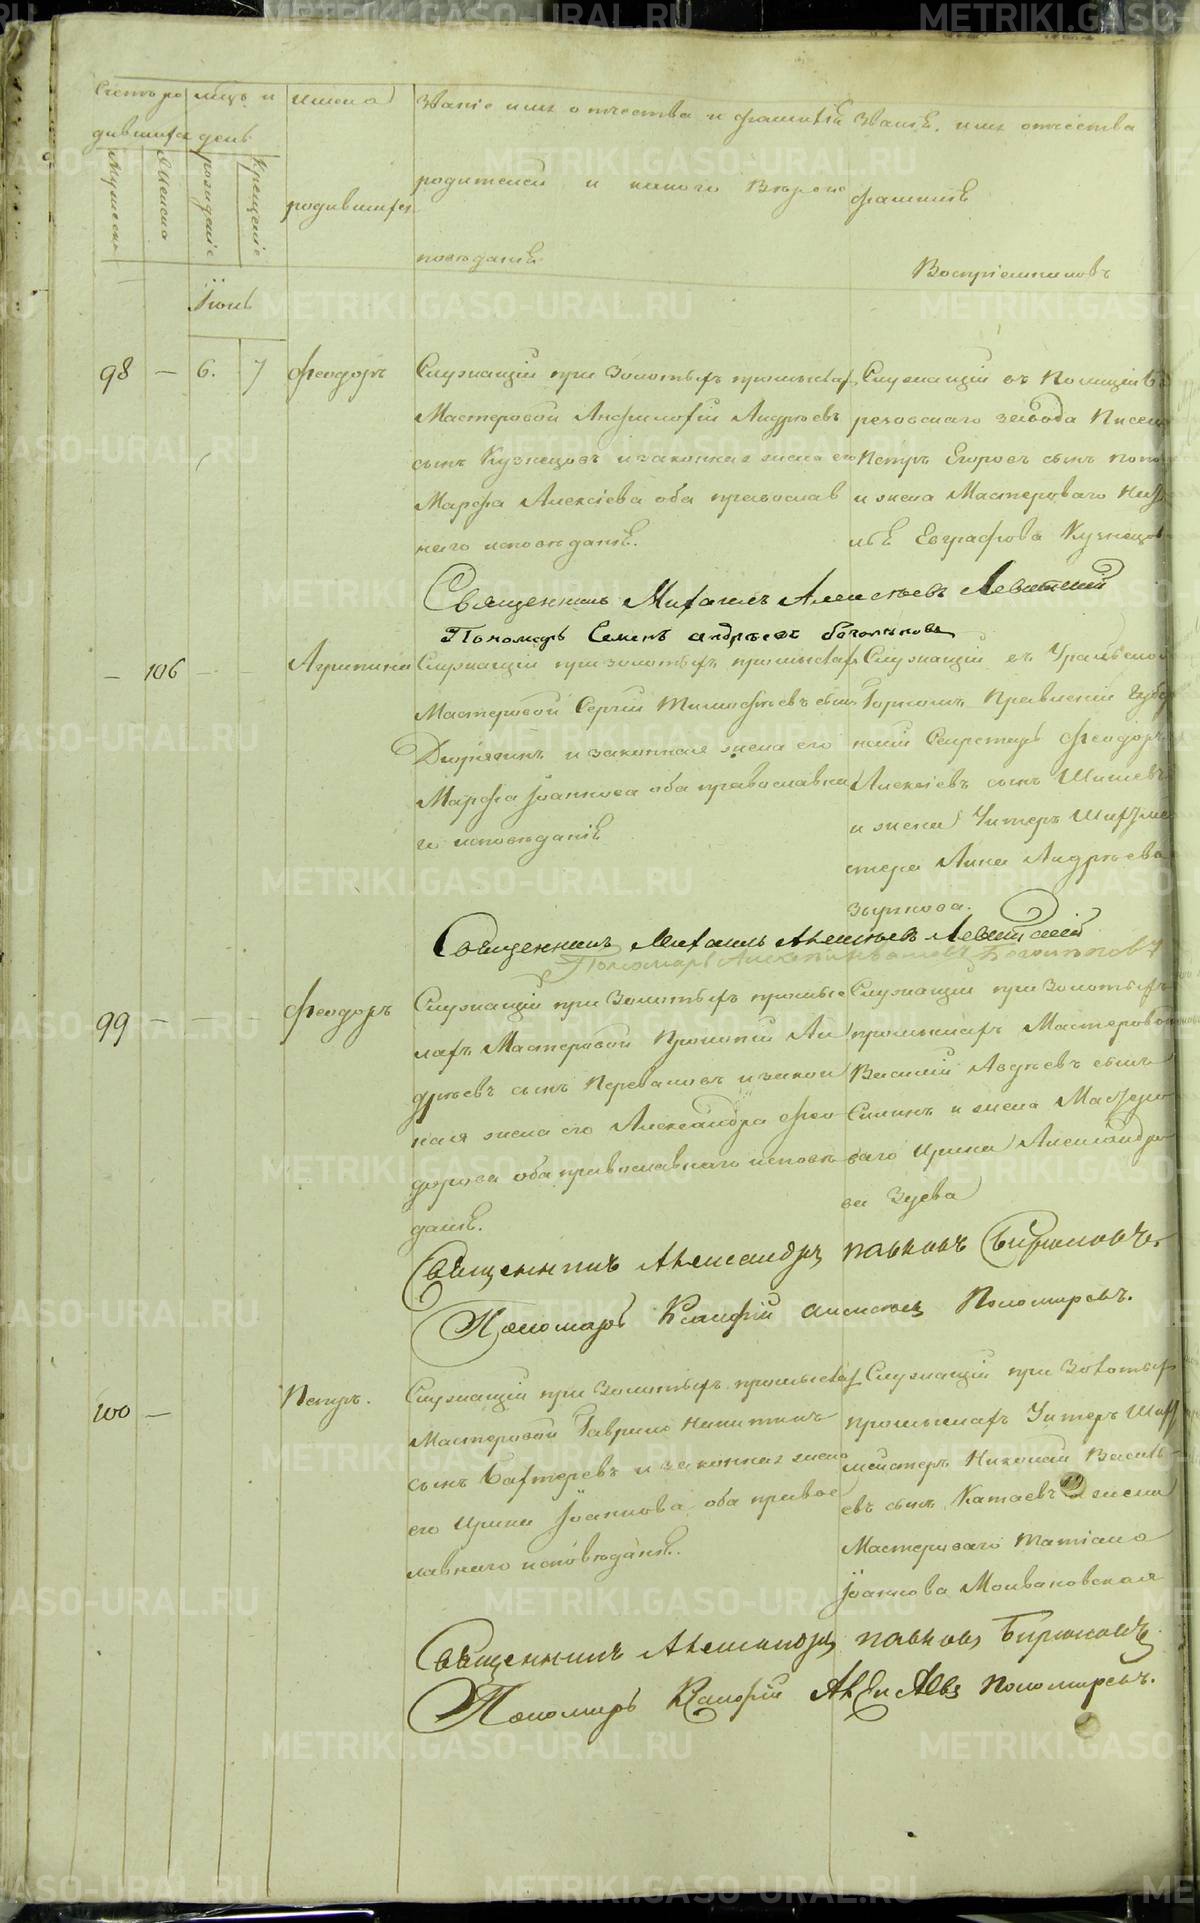 Счетъ ро
дившихся
мѣсяцъ и
день
имена
родившихся
Званіе имя отчества и фамиліи
родителей и какого Вѣроис
повѣданія
Званіе, имя отчества
фамилія
Воспріемниковъ
Мужеска
Женска
рожденіе
Крещеніе
Іюнь
98 — 6. 7 Феодоръ
Служащій при Золотыхъ промыслах
Мастеровой Андрѣевъ
сынъ Кузнецовъ и законная жена его
Марфа Алексіева оба православ
наго исповѣданія.
Служащій въ Полиціи Бе
резовскаго завода Писец
Петръ Егоровъ сынъ Попо
и жена Мастероваго
Евграфова Кузнецов
Священникъ Михаилъ Алексѣевъ Левитскій
Пономарь Семенъ андрѣевъ
— 106 — — Агрипина
Служащій при золотыхъ промыслах
Мастеровой Сергій Тимофѣевъ сынъ
и законная жена его
Марфа Іоаннова оба православна
го исповѣданія
Служащій въ Уральском
Горномъ Правленіи Губер
нскій Секретарь Феодоръ
Алексіевъ сынъ Шишевъ
и жена Унтеръ Шихтме
стера Анна Андрѣева
Зыркова.
Священникъ Михаилъ Алексѣевъ Левитскій
Пономарь
99 — — — Феодоръ
Служащій при Золотыхъ промыс
лахъ Мастеровой Прокопій Ан
дрѣевъ сынъ Переваловъ и закон
ная жена его Александра Фео
дорова оба православнаго исповѣ
данія.
Служащій при Золотыхъ
промыслахъ Мастеровой
Василій Авдѣевъ сынъ
Силинъ и жена Мастеро
ваго Ирина Александро
ва Зуева
Священникъ Александръ павловъ Бирюковъ
Пономарь Ксанфій алексѣевъ Пономаревъ.
100 — Петръ.
Служащій при Золотыхъ промыслах
Мастеровой Гаврило Никитинъ
сынъ Бахтеревъ и законная жена
его Ирина Іоаннова оба правос
лавнаго исповѣданія.
Служащій при Золотых
промыслахъ Унтеръ Шихт
мейстеръ Николай Василь
евъ сынъ Катаевъ и жена
Мастероваго Татіана
Іоаннова Мокроновская
Священникъ Александръ павловъ Бирюковъ
Пономарь Ксанфій Алексѣевъ Пономаревъ.
METRIKI.GASO-URAL.RU